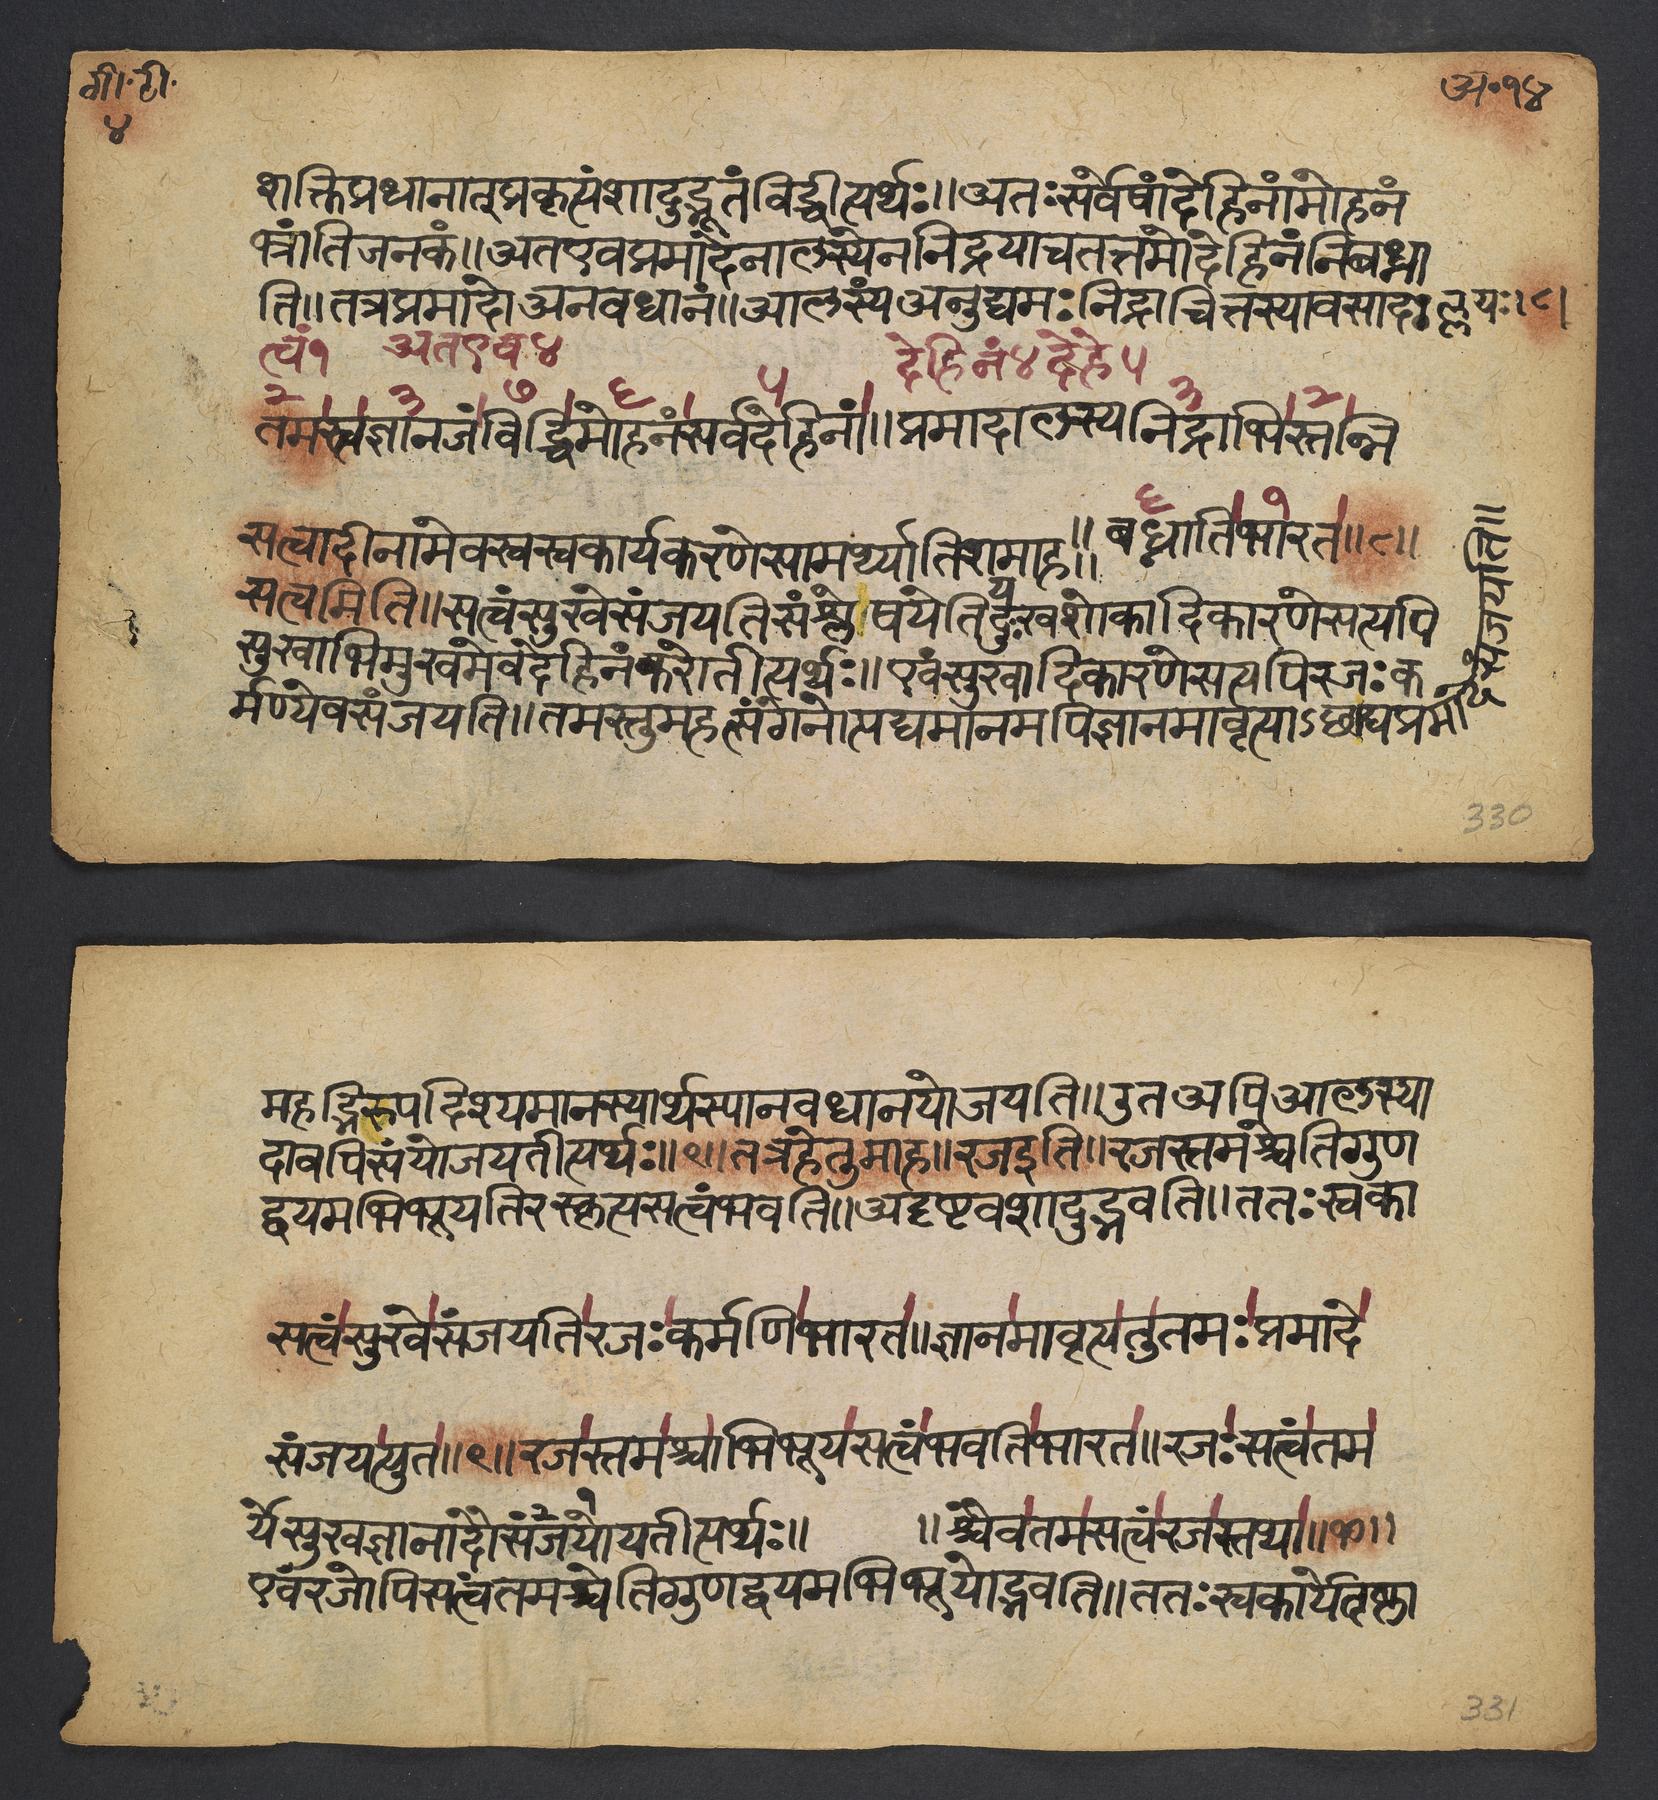 गी॰टी॰
४
अ॰१४
शक्तिप्रधानात्प्रकृत्यंशादुद्भूतंविद्धीत्यर्थः॥अतःसर्वेषांदेहिनांमोहनं
भ्रांतिजनकं॥अतएवप्रमादेनालस्येननिद्रयाचतत्तमोदेहिनंनिबध्ना
ति॥तत्रप्रमादोअनवधानं॥आलस्यंअनुद्यमःनिद्राचित्तस्यावसादःल्लयः।८।
त्वं१ अतएव४ देहिनं४देहे५
२ ३ ७ ६ ५ ३ २
तमस्त्वज्ञानजंविद्धिमोहनंसर्वदेहिनां॥प्रमादालस्यनिद्राभिस्तन्नि
६ १
बध्नातिभारत॥८॥
सत्वादीनामेवस्वस्वकार्यकरणेसामर्थ्यातिशमाह॥
य
सत्वमिति॥सत्वंसुखेसंजयतिसंश्लेषयेतिदुःखशोकादिकारणेसत्यपि
सुखाभिमुखमेवदेहिनंकरोतीत्यर्थः॥एवंसुखादिकारणेसत्यपिरजःक
र्मण्येवसंजयति॥तमस्तुमहत्संगेनोत्पद्यमानमपिज्ञानमावृत्याऽछाद्यप्रमा
देसंजयति॥
330
महद्भिरुपदिश्यमानस्यार्थस्यानवधानयोजयति॥उतअपिआलस्या
दावपिसंयोजयतीत्यर्थः॥९॥तत्रहेतुमाह॥रजइति॥रजस्तमश्चेतिगुण
द्वयमभिभूयतिरस्कृत्यसत्वंभवति॥अदृष्टवशादुद्भवति॥ततःस्वका
सत्वंसुखेसंजयतिरजःकर्मणिभारत॥ज्ञानमावृत्यतुतमःप्रमादे
संजयत्युत॥९॥रजस्तमश्चाभिभूयसत्वंभवतिभारत॥रजःसत्वंतम
२ १
र्येसुखज्ञानादौसंजयोयतीत्यर्थः॥ ॥श्चैवतमसत्वंरजस्तथा॥१०॥
एवंरजोपिसत्वंतमश्चेतिगुणद्वयमभिभूयोद्भवति॥ततःस्वकार्येतृष्णा
331